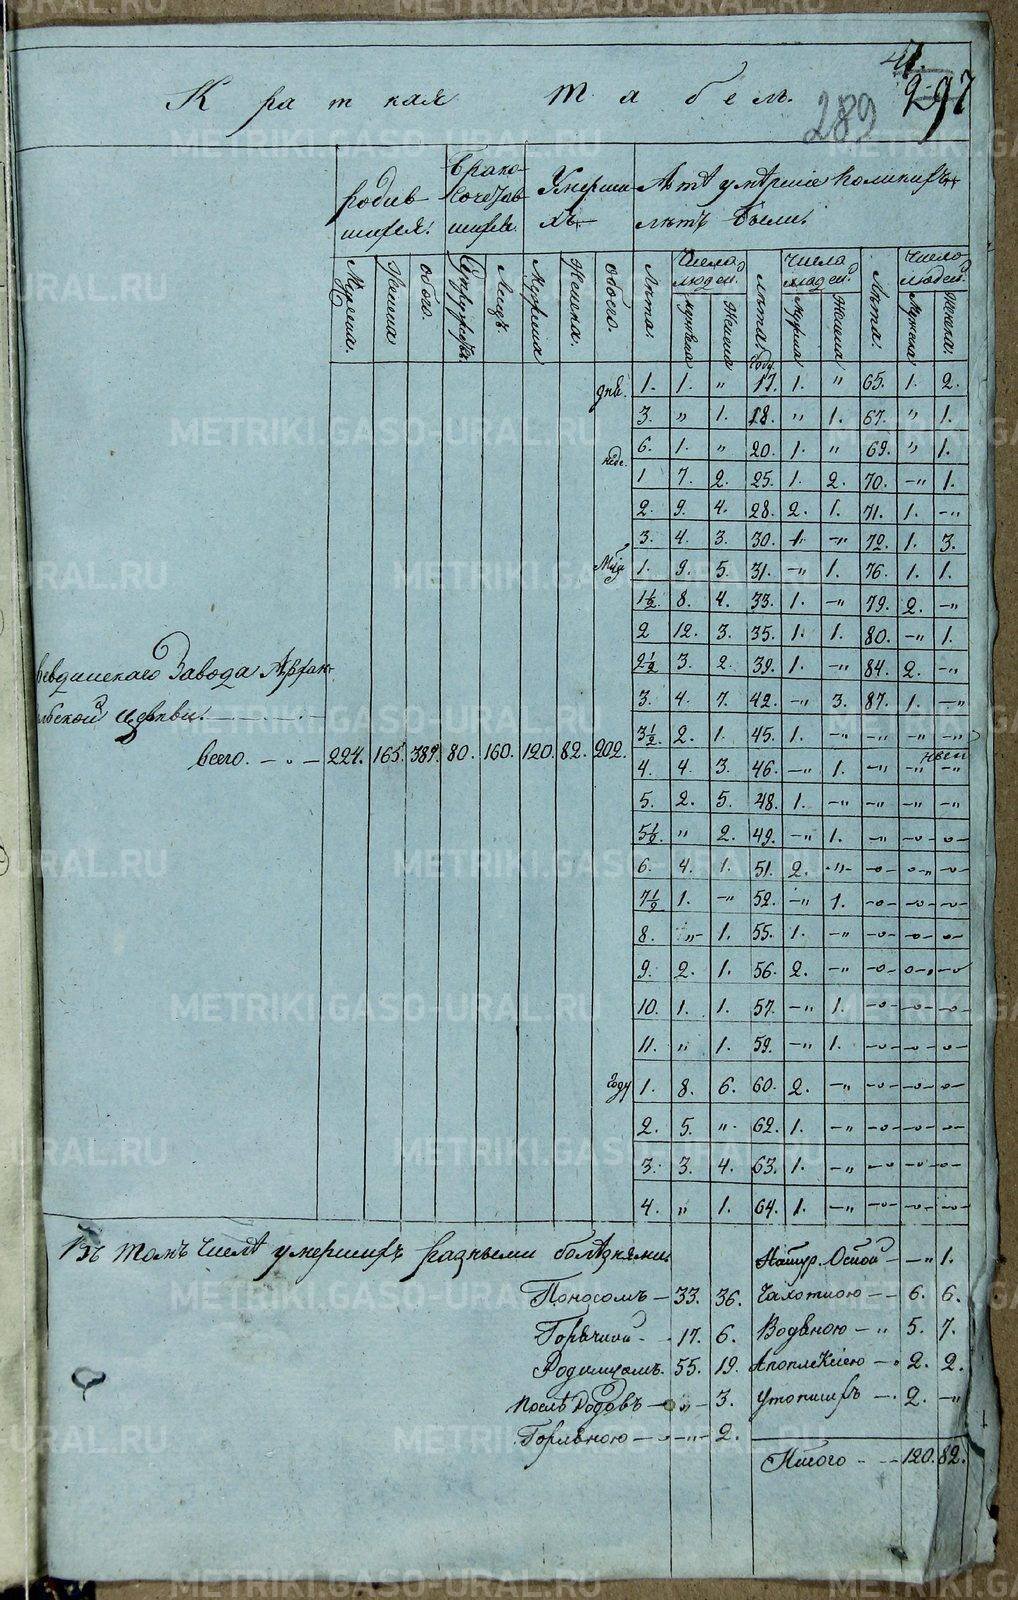 41.
297
289
Краткая табель.
родив-
шихся.
Брако-
сочетав-
шихся.
Умерши-
хъ
Лѣтъ умершіе коликихъ
лѣтъ были.
Мужеска. Женска обоего. Супружествъ. Лицъ. Мужеска Женска. Обоего. Лѣта. Числа людей. мужеска Женска Лѣта. Числа людей. Мужеска Женска Лѣта. Число людей. Мужеска Женска.
году.
дни. 1. 1. " 17. 1. " 65. 1. 2.
3. " 1. 18. " 1. 67. " 1.
6. 1. " 20. 1. " 69. " 1.
неде. 1 7. 2. 25. 1. 2. 70. -"- 1.
2. 9. 4. 28. 2. 1. 71. 1. -"-
3. 4. 3. 30. 1. -"- 72. 1. 3.
1. 9. 5. 31. -"- 1. 76. 1. 1.
1½. 8. 4. 33. 1. -"- 79. 2. -"-
2 12. 3. 35. 1. 1. 80. -"- 1.
2½ 3. 2. 39. 1. -"- 84. 2. -"-
3. 4. 7. 42. -"- 3. 87. 1. -"-
3½. 2. 1. 45. 1. -"- -"- -"- -"-
4. 4. 3. 46. -"- 1. -"- -"- -"-
5. 2. 5. 48. 1. -"- -"- -"- -"-
5½. " 2. 49. -"- 1. -"- -"- -"-
6. 4. 1. 51. 2. -"- -"- -"- -"-
7½ 1. -"- 52. -"- 1. -"- -"- -"-
8. -"- 1. 55. 1. -"- -"- -"- -"-
9. 2. 1. 56. 2. -"- -"- -"- -"-
10. 1. 1. 57. -"- 1. -"- -"- -"-
11. " 1. 59. -"- 1. -"- -"- -"-
году 1. 8. 6. 60. 2. -"- -"- -"- -"-
2. 5. " 62. 1. -"- -"- -"- -"-
3. 3. 4. 63. 1. -"- -"- -"- -"-
4. " 1. 64. 1. -"- -"- -"- -"-
Ревдинскаго Завода Архан-
гельской церкви.
Всего. 224. 165. 389. 80. 160. 120. 82. 202.
Въ томъ числѣ умершихъ разными болѣзнями.
Натур. Оспой -"- 1.
Поносомъ 33. 36. Чахоткою 6. 6.
Горячкой 17. 6. Водяною 5. 7.
Родимцомъ. 55. 19. Апоплексіею 2. 2.
Послѣ Родовъ -"- 3. Утопшихъ 2. -"-
Горляною -"- 2.
Итого 120. 82.
METRIKI.GASO-URAL.RU